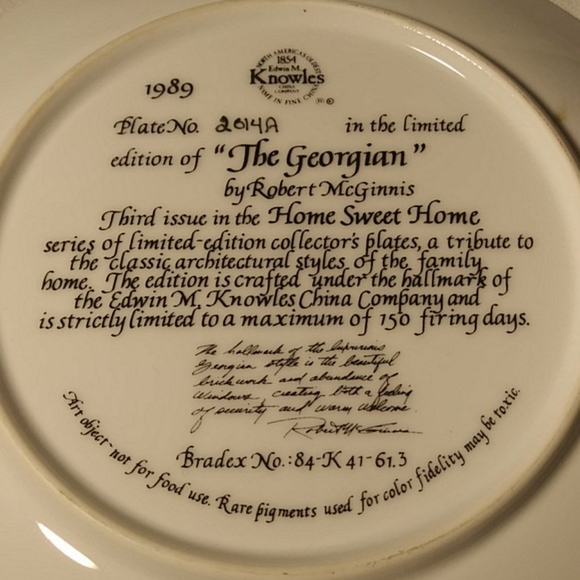 NORTH AMERICA'S OLDEST
1854
Edwin M.
Knowles
CHINA
COMPANY
NAME IN FINE CHINA
1989
Plate No. 2614A in the limited
edition of "The Georgian"
by Robert McGinnis
Third issue in the Home Sweet Home
series of limited-edition collector's plates, a tribute to
the classic architectural styles of the family
home. The edition is crafted under the hallmark of
the Edwin M. Knowles China Company and
is strictly limited to a maximum of 150 firing days.
The hallmark of the luxurious
Georgian style is the beautiful
brickwork and abundance of
windows, creating both a feeling
of security and warm welcome.
Robert McGinnis
Bradex No.: 84-K 41-61.3
Art object–not for food use. Rare pigments used for color fidelity may be toxic.